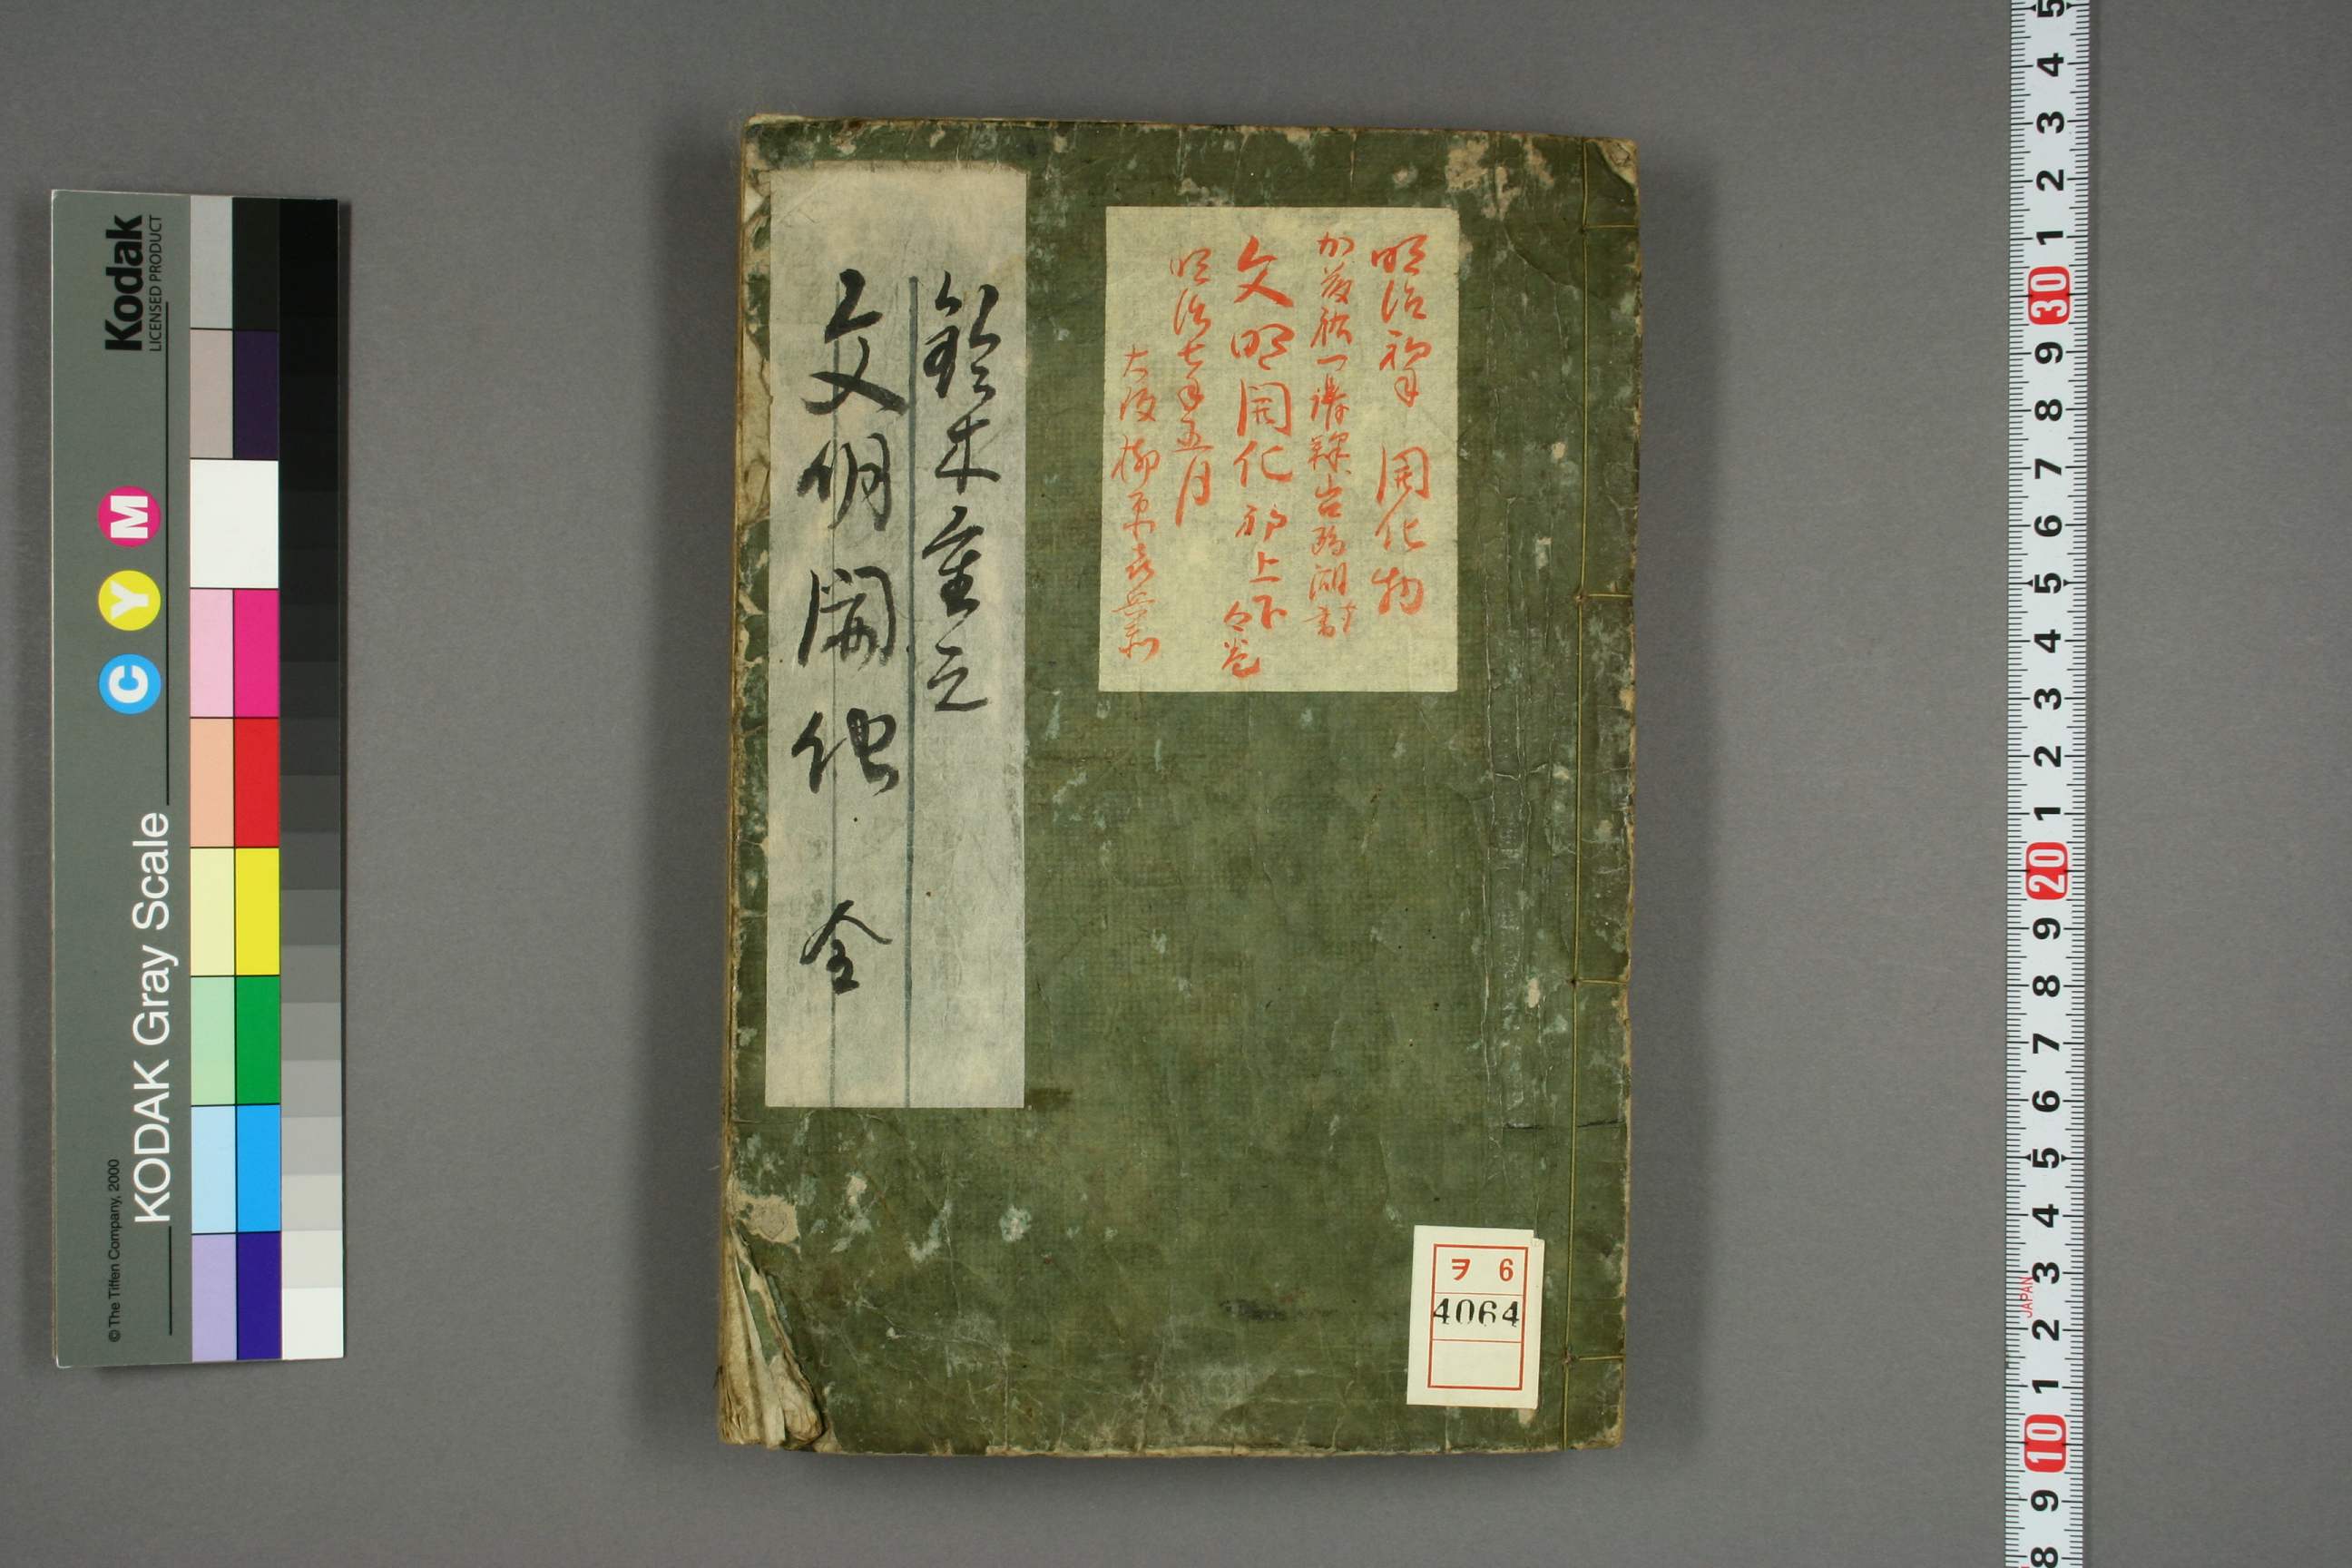 明治初年 開化物
加藤祐一講釈
文明開化 初上下
合巻
明治七年五月
大阪 柳原喜兵衛
鈴木重之
文明開化 全
ヲ 6
4064
Kodak
LICENSED PRODUCT
C Y M
KODAK Gray Scale
© The Tiffen Company, 2000
5
4
3
2
1
30
9
8
7
6
5
4
3
2
1
20
9
8
7
6
5
4
3
JAPAN
2
1
10
9
8